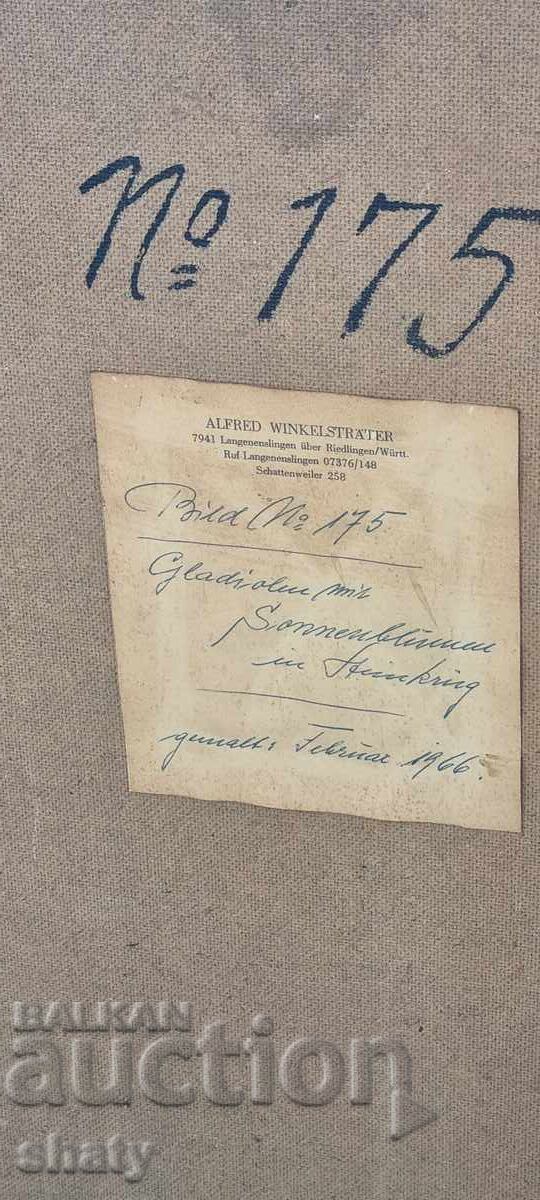 No 175
ALFRED WINKELSTRÄTER
7941 Langenenslingen über Riedlingen/Württ.
Ruf Langenenslingen 07376/148
Schattenweiler 258
Bild No 175
Gladiolen mit
Sonnenblumen
in Steinkrug
gemalt: Februar 1966.
BALKAN
auction
shaty